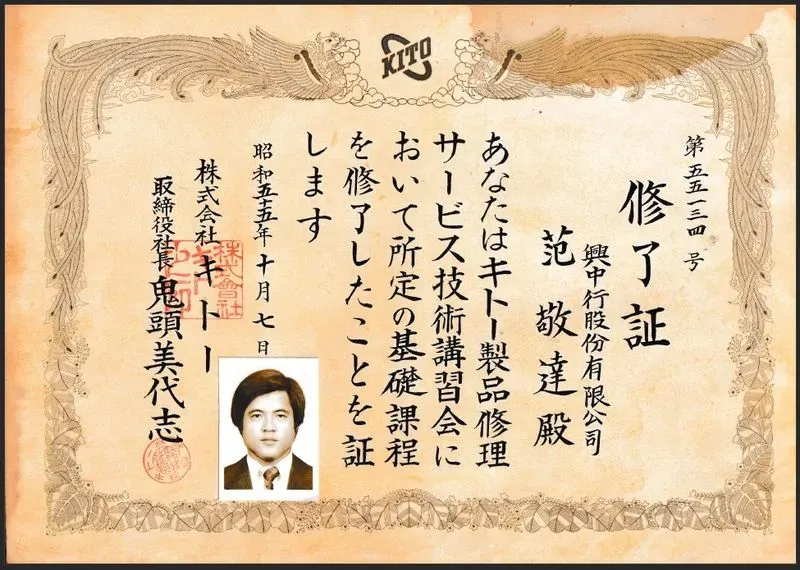 KITO
第五五一三四号
修了証
興中行股份有限公司
范敬達殿
あなたはキトー製品修理
サービス技術講習会に
おいて所定の基礎課程
を修了したことを証
します
昭和五十五年十月七日
株式会社キトー
取締役社長鬼頭美代志
株式會社